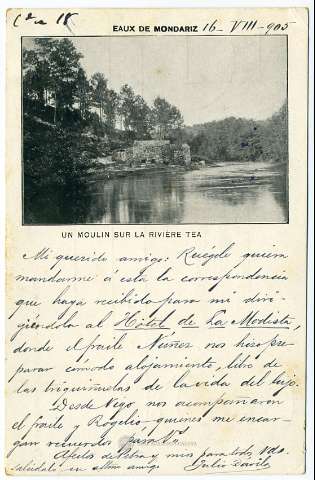 Cta 18
EAUX DE MONDARIZ 16-VIII-905
UN MOULIN SUR LA RIVIÈRE TEA
Mi querido amigo: Ruégole quiera
mandarme á esta la correspondencia
que haya recibido para mi diri-
jiéndola al Hôtel de La Modista,
donde el fraile Nuñez nos hizo pre-
parar cómodo alojamiento, libre de
las triquiñuelas de la vida del lujo.
Desde Vigo nos acompañaron
el fraile y Rogelio quienes me encar-
gan recuerdos para V.
Afectos de Petra y mis para todos Vds.
Salúdale su afmo amigo Julio Davila